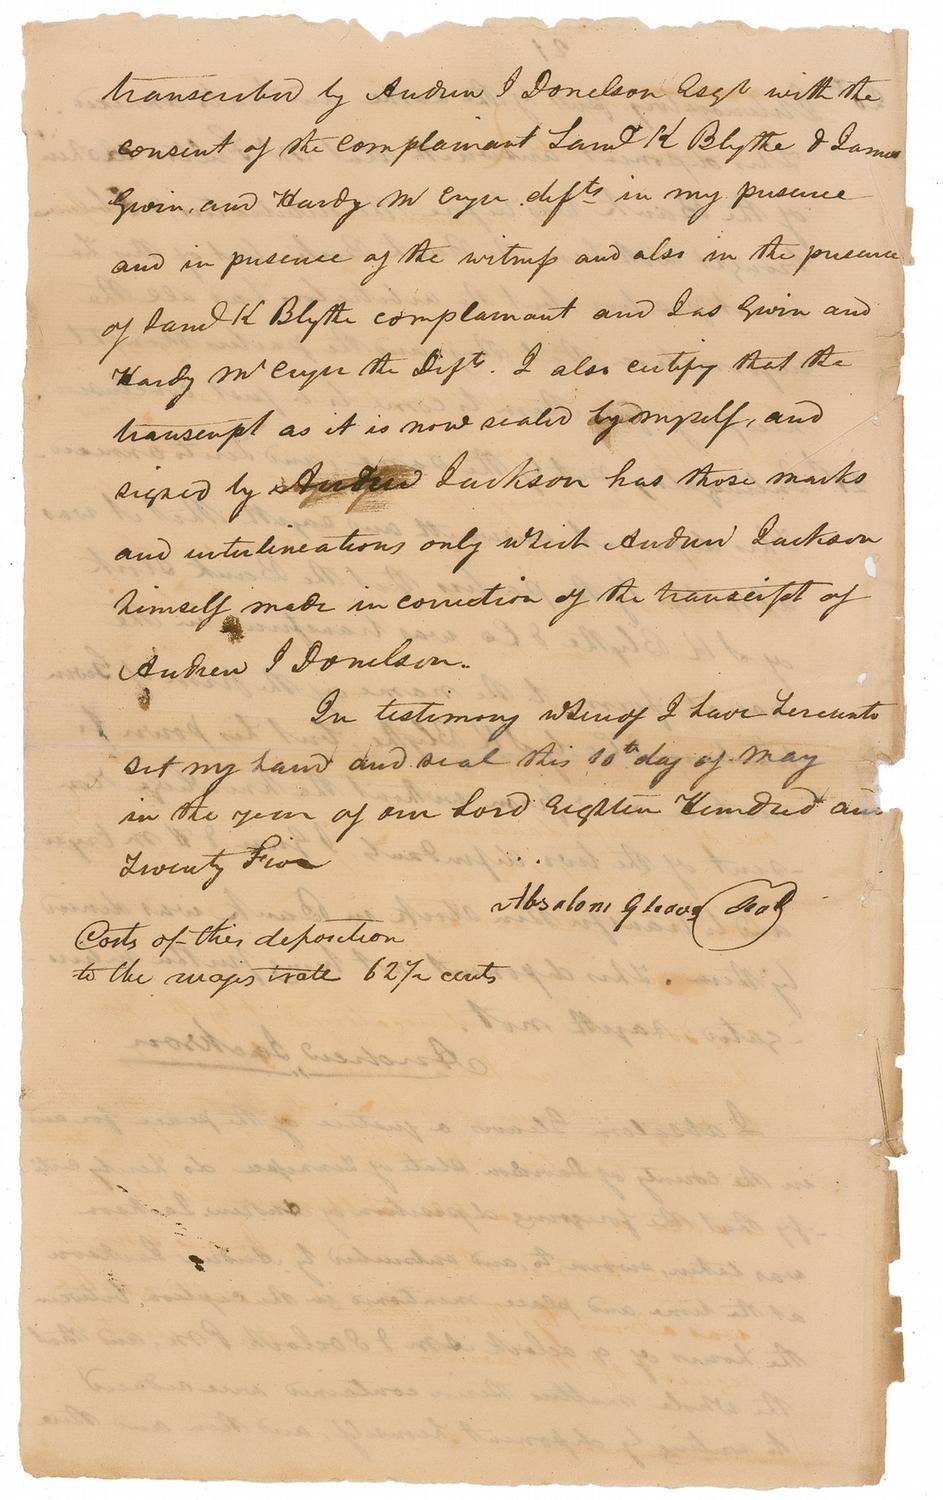 transcribed by Andrew J Donelson Esqr with the
consent of the complainant Saml K Blythe & James
Gwin, and Hardy Mc Cryer defts in my presence
and in presence of the witness and also in the presence
of Saml K Blythe complainant and Jas Gwin and
Hardy Mc Cryer the Defts. I also certify that the
transcript as it is now sealed by myself, and
signed by Andrew Jackson has those marks
and interlineations only which Andrew Jackson
himself made in correction of the transcript of
Andrew J Donelson.
In testimony whereof I have hereunto
set my hand and seal this 10th day of May
in the year of our Lord Eighteen Hundred and
Twenty Five
Absalom Gleaves Seal
Costs of this deposition
to the majistrate 62½ cents